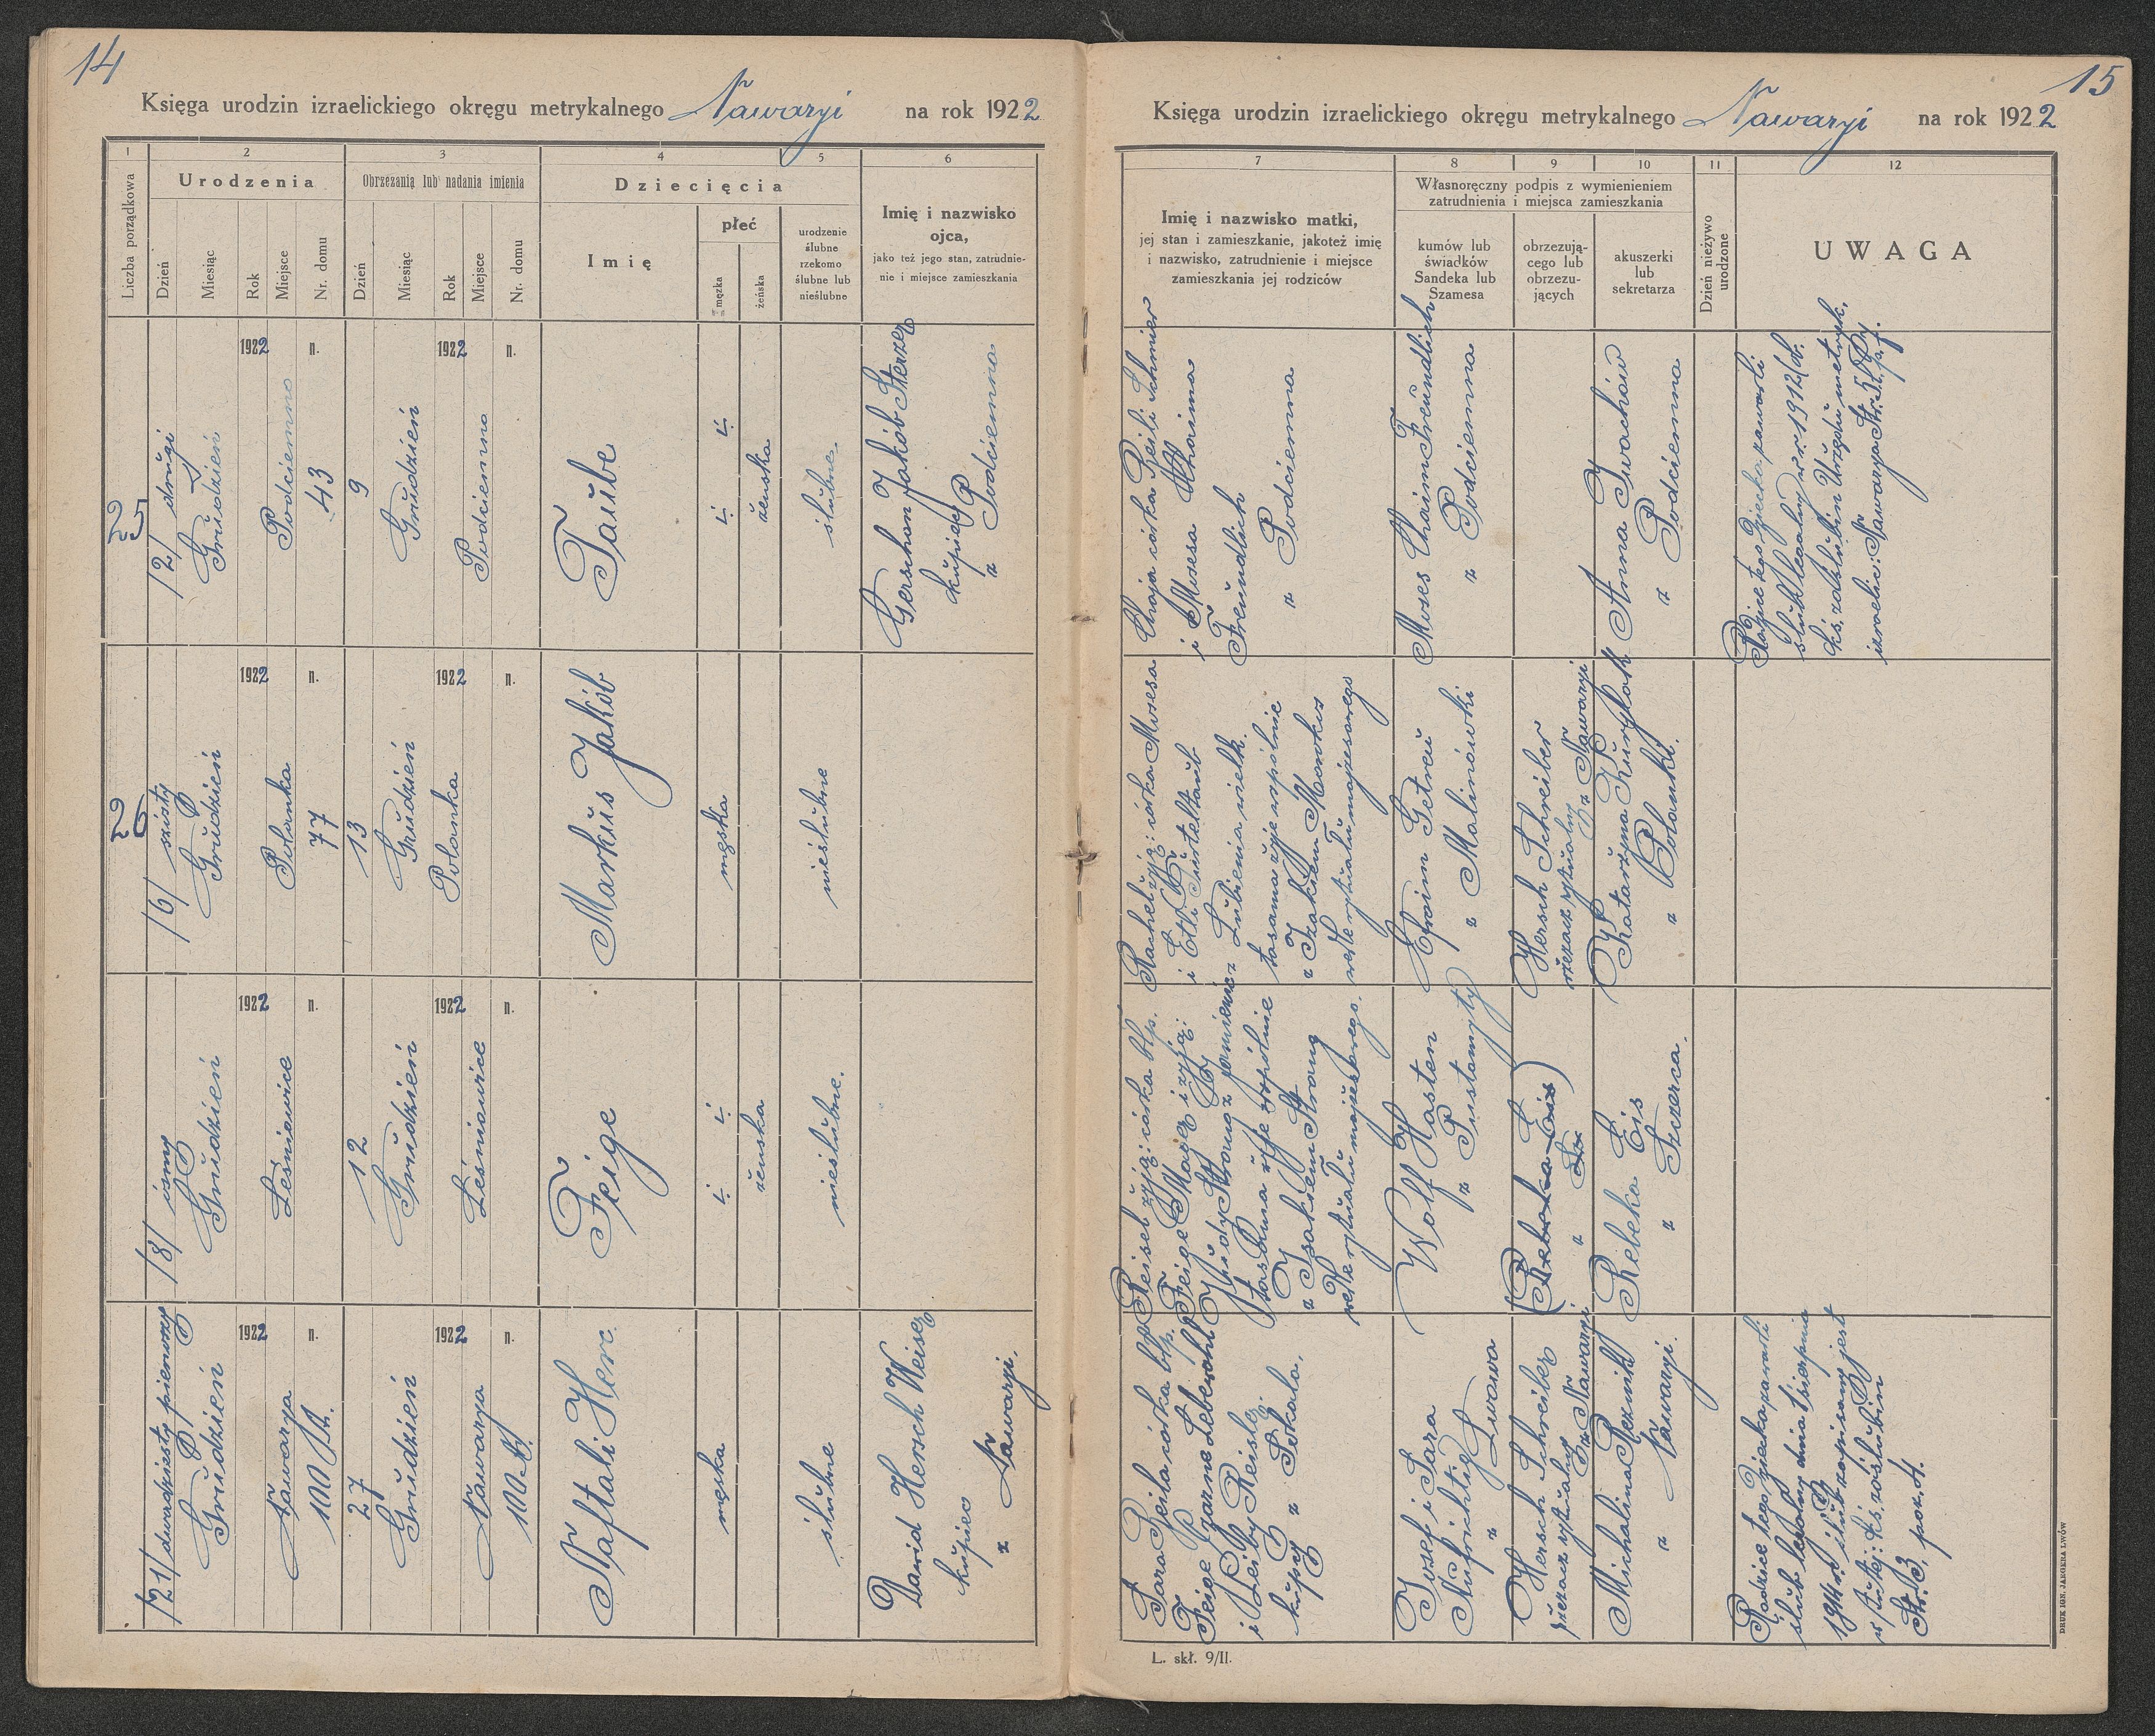 14
Księga urodzin izraelickiego okręgu metrykalnego Nawaryi na rok 1922
1
2
3
4
5
6
Liczba porządkowa
Urodzenia
Obrzezania lub nadania imienia
Dziecięcia
Dzień
Miesiąc
Rok
Miejsce
Nr. domu
Dzień
Miesiąc
Rok
Miejsce
Nr. domu
Imię
płeć
męzka
żeńska
urodzenie
ślubne
rzekomo
ślubne lub
nieślubne
Imię i nazwisko
ojca,
jako też jego stan, zatrudnie-
nie i miejsce zamieszkania
25
/2/ drugi
Grudzień
1922
Podciemno
n.
43
9
Grudzień
1922
Podciemno
n.
Taube
żeńska
ślubne
Gerschon Jakób Sterzer
kupiec
z Podciemna
26
/6/ szósty
Grudzień
1922
Polanka
n.
77
13
Grudzień
1922
Polanka
n.
Markus Jakób
męska
nieślubne
/8/ ósmy
Grudzień
1922
Leśniowice
n.
12
Grudzień
1922
Leśniowice
n.
Feige
żeńska
nieślubne.
/21/ dwudziesty pierwszy
Grudzień
1922
Nawarya
n.
100
27
Grudzień
1922
Nawarya
n.
100
Naftali Herc
męska
ślubne
Dawid Hersch Weiser
kupiec
z Nawaryi.
15
Księga urodzin izraelickiego okręgu metrykalnego Nawaryi na rok 1922
7
8
9
10
11
12
Imię i nazwisko matki,
jej stan i zamieszkanie, jakoteż imię
i nazwisko, zatrudnienie i miejsce
zamieszkania jej rodziców
Własnoręczny podpis z wymienieniem
zatrudnienia i miejsca zamieszkania
kumów lub
świadków
Sandeka lub
Szamesa
obrzezują-
cego lub
obrzezu-
jących
akuszerki
lub
sekretarza
Dzień nieżywo
urodzone
UWAGA
Chaja córka Beili Schmier
i Mosesa Chaima
Freundlich
z Podciemna
Moses Chaim Freundlich
z Podciemna
Anna Iwachów
z Podciemna
Rodzice tego dziecka zawarli
ślub legalny w r. 1912
ks. zaślubin Urzędu metryk.
izraelic. Nawarya
Rachel żyją: córka Mosesa
i Etli Türteltaub
z Lubienia wielk.
tasama żyje wspólnie
z Izakiem
wedle rytuału mojżeszowego
Efroim Getreu
z Malinówki
Hersch Schreiber
rzezacz rytualny
z Nawaryi
Katarzyna Kurylak
z Polanki.
Reisel żyją: córka błp.
Feige Mager i żyją:
tasama żyje wspólnie
z Isakiem Strang
wedle rytuału mojżeszowego.
Wolf Hasten
z Pustomyty
(Rebeka Eis)
z
Rebeka Eis
z Szczerca.
Sara Beila córka błp.
Feige Perne Leberohl
i Leiby Reisler
kupcy z Sokala,
Josef i Sara
Aufrichtig
z Lwowa
Hersch Schreiber
rzezacz rytualny
z Nawaryi
Michalina Reznik
z Nawaryi.
Rodzice tego dziecka zawarli
ślub legalny dnia 1 sierpnia
i ślub zapisany jest
w tutej: ks. zaślubin
Str. 3, poz. 4.
L. skł. 9/II.
DRUK IGN. JAEGERA LWÓW